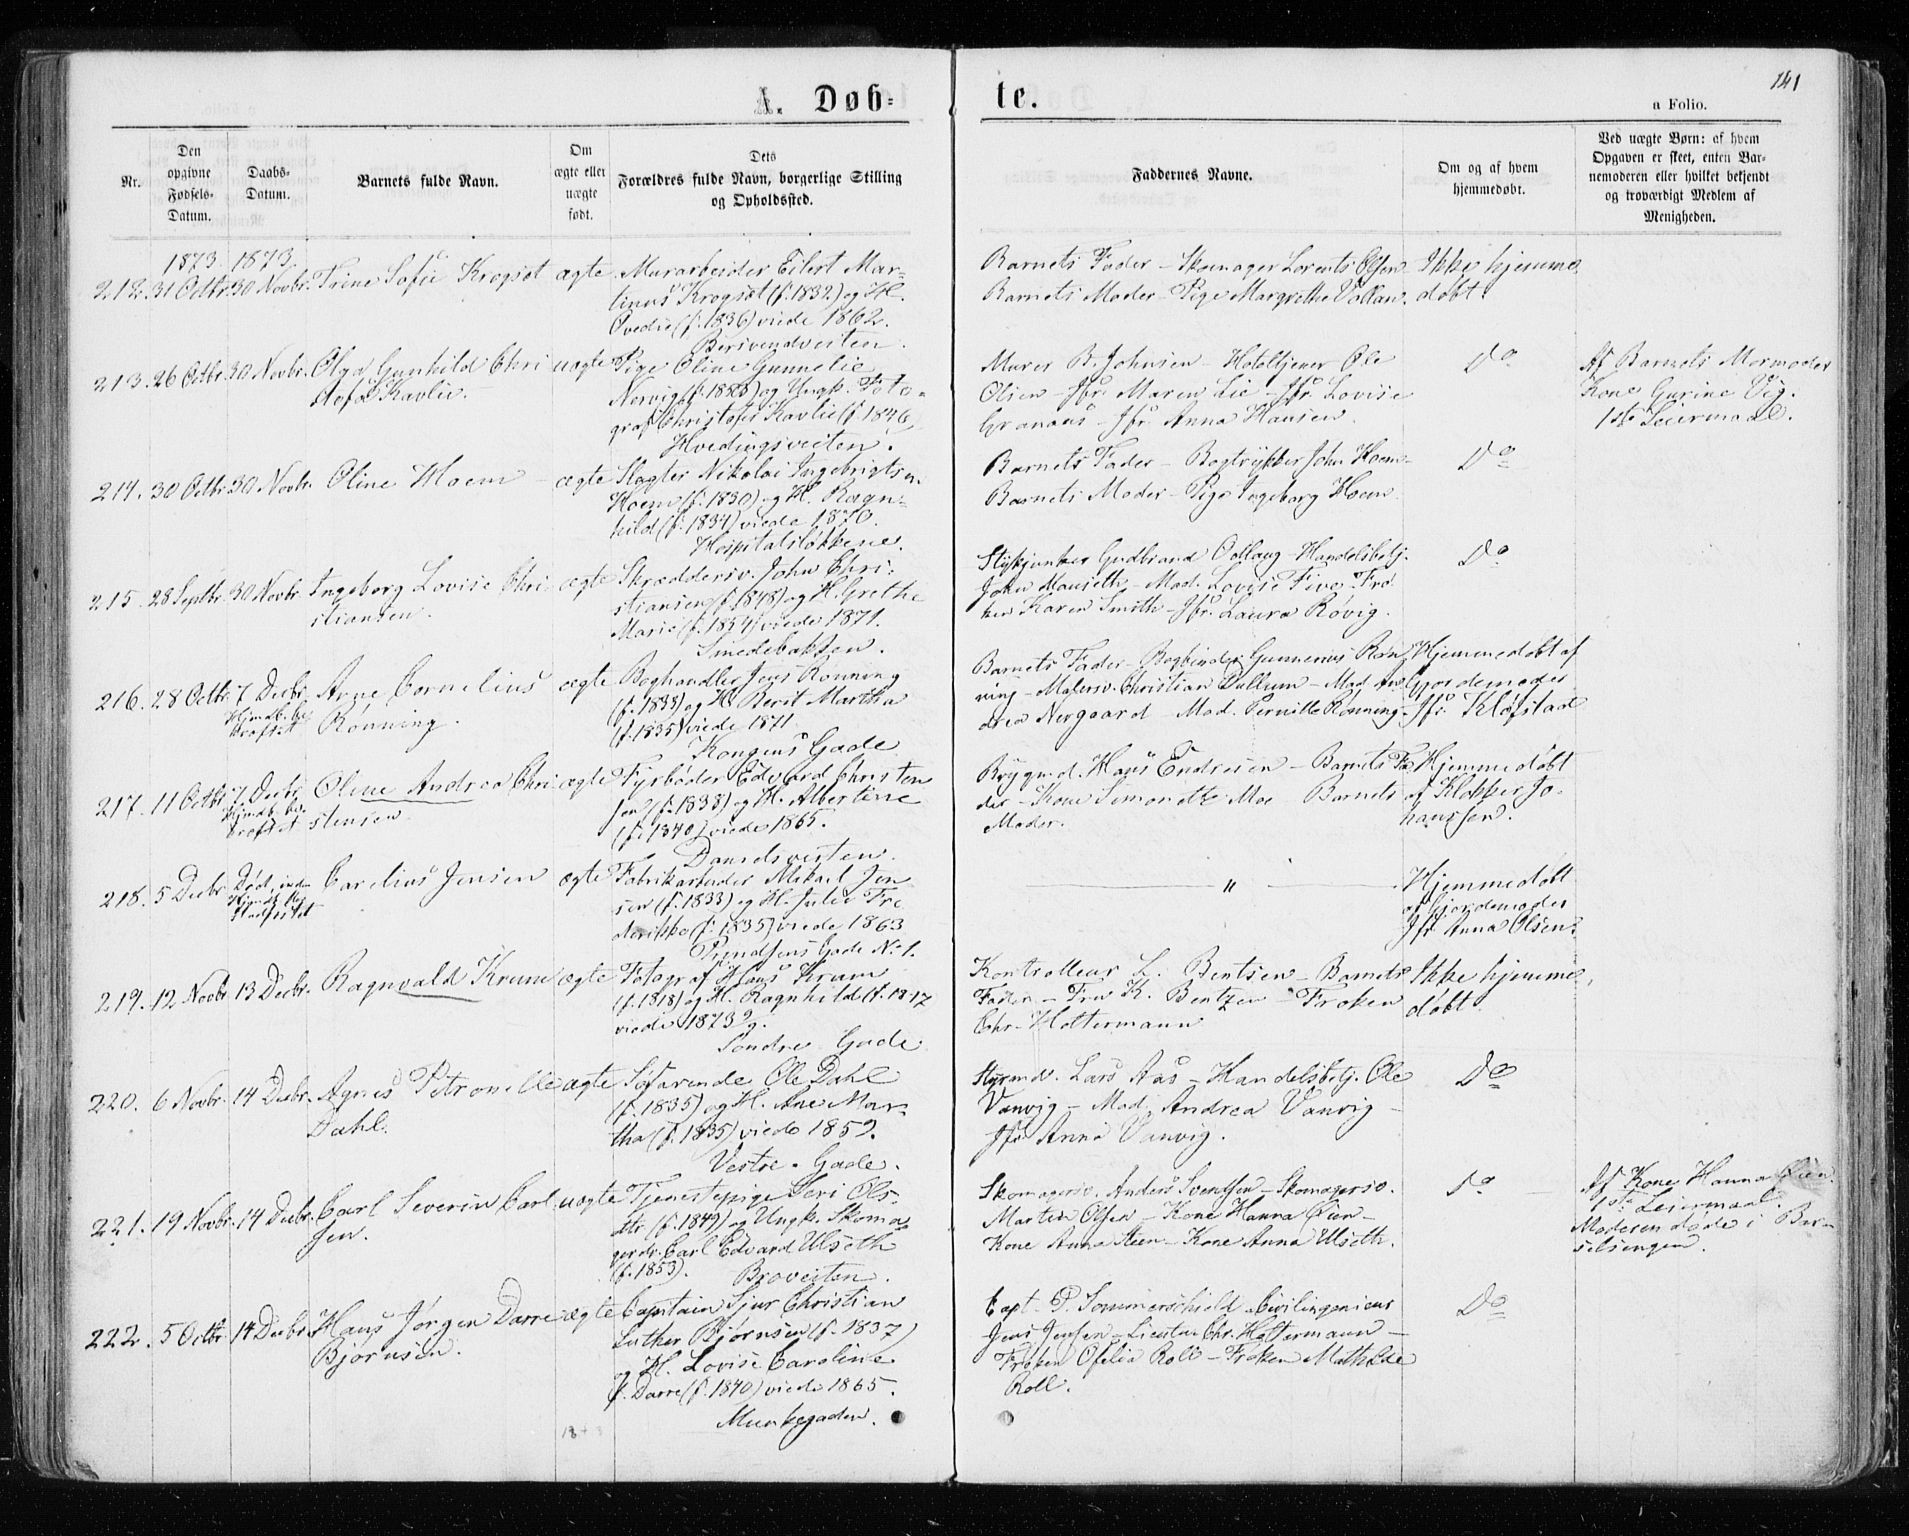 141
A. Døb- te.
a Folio.
Nr.
Den opgivne Fødsels-Datum.
Daabs-Datum.
Barnets fulde Navn.
Om ægte eller uægte født.
Dets Forældres fulde Navn, borgerlige Stilling og Opholdssted.
Faddernes Navne.
Om og af hvem hjemmedøbt.
Ved uægte Børn: af hvem Opgaven er skeet, enten Barnemoderen eller hvilket bekjendt og troværdigt Medlem af Menigheden.
1873. 1873.
212. 31 Octbr. 30 Novbr. Trine Sofie Krogsøt ægte Murarbeider Eilert Mar-
tinus Krogsøt (f. 1832) og H.
(f. 1836) viede 1862.
Barnets Fader - Skomager Lorents Olsen
Barnets Moder - Pige Margrethe
Ikke hjemme
døbt.
213. 26 Octbr. 30 Novbr. Olga Gunhild Chri
stofa Kavlie.
uægte Pige Oline Gunnelie
og Ungk. Foto-
graf Christofer Kavlie (f. 1846)
Hvedingsveiten.
Murer B. Johnsen - Hoteltjener Ole
Olsen - Jfr. Maren Lie - Jfr. Lovise
Granaus - Jfr. Anna Hansen.
Do
Af Barnets Mormoder
Kone Gurine Vig.
1ste Leiermaal.
214. 30 Octbr. 30 Novbr. Oline Hoem - ægte Slagter Nikolai Ingebrigtsen
Hoem (f. 1830) og H. Ragn-
hild (f. 1834) viede 1870.
Hospitalsløkkene.
Barnets Fader - Bogtrykker John Hoem
Barnets Moder - Pige Ingeborg Hoem
Do
215. 28 Septbr. 30 Novbr. Ingeborg Lovise Chri
stiansen.
ægte Skræddersv. John Chri-
stiansen (f. 1848) og H. Grethe
Marie (f. 1854) viede 1871.
Smedebakken.
Stykjunker Gudbrand Oollaug - Handelsbetj.
John Mauseth - Mad. Lovise - Frø
ken Karen Smith - Jfr. Laura Røvig.
Do
216. 28 Octbr. 7 Decbr. Arne Cornelius
Rönning.
Hjmdb. be
kræftet
ægte Boghandler Jens Rönning
(f. 1833) og H. Berit Martha
(f. 1835) viede 1871
Kongens Gade
Barnets Fader - Bogbinder Gunnerius Røn
ning - Malersv. Christian Dullum - Mad. An
drea Nergaard - Mad. Pernille Rönning
Hjemmedøbt af
Gjordemoder
Jfr. Klöfstad
217. 11 Octbr. 7. Decbr. Oline Andrea Chri
stensen
Hjmdb. be
kræftet
ægte Fyrbøder Edvard Christen
sen (f. 1838) og H. Albertine
(f. 1840) viede 1865.
Danielsveiten.
Brygmd. Hans Endresen - Barnets Fa
der - Kone Simonette Moe - Barnets
Moder.
Hjemmedøbt
af Klokker Jo-
hanssen.
218. 5 Decbr. Död, inden
Hjmdb. be
Stadfæstet
Carelius Jensen ægte Fabrikarbeider Mikael Jen
sen (f. 1833) og H. Julie Fre
derikke (f. 1835) viede 1863
Prindsens Gade No 1.
"
Hjemmedøbt
af Gjordemoder
Jfr. Anna Olsen.
219. 12 Novbr. 13 Decbr. Ragnvald Krum ægte Fotograf Hans Krum
(f. 1818) og H. Ragnhild (f. 1817
viede 1873
Söndre Gade
Kontrolleur L. Bentsen - Barnets
Fader - Fru K. Bentzen - Frøken
Chr. Holtermann
Ikke hjemme
døbt.
220. 6 Novbr. 14 Decbr. Agnes Petronelle
Dahl.
ægte Søfarende Ole Dahl
(f. 1835) og H. Ane Mar-
tha (f. 1835) viede 1859.
Vestre Gade.
Styrmd. Lars Aas - Handelsbetj. Ole
Vanvig - Mad. Andrea Vanvig -
Jfr. Anna Vanvig.
Do
221. 19 Novbr. 14 Decbr. Carl Severin Carl
sen.
uægte Tjenestepige Seri Ols-
dtr. (f. 1849) og Ungk. Skoma-
gerdr. Carl Edvard Ulseth
(f. 1853).
Broveiten.
Skomagersv. Anders Svendsen - Skomagersv.
Martin Olsen - Kone Hanna Øien -
Kone Anna Steen - Kone Anna Ulseth.
Do
Af Kone Hanna Øien.
1ste Leiermaal.
Moderen døde i Bar-
selsengen.
222. 5 Octbr. 14 Decbr. Hans Jørgen Darre
Bjørnsen.
ægte Capitain Sjur Christian
Luther Bjørnsen (f. 1837)
og H. Lovise Caroline
f. Darre (f. 1840) viede 1865.
Munkegaden.
Capt. P. Sommerschield - Civilingenieur
Jens Jensen - Lieutn. Chr. Holtermann -
Frøken Ofelia Roll - Frøken Mathilde
Roll.
Do